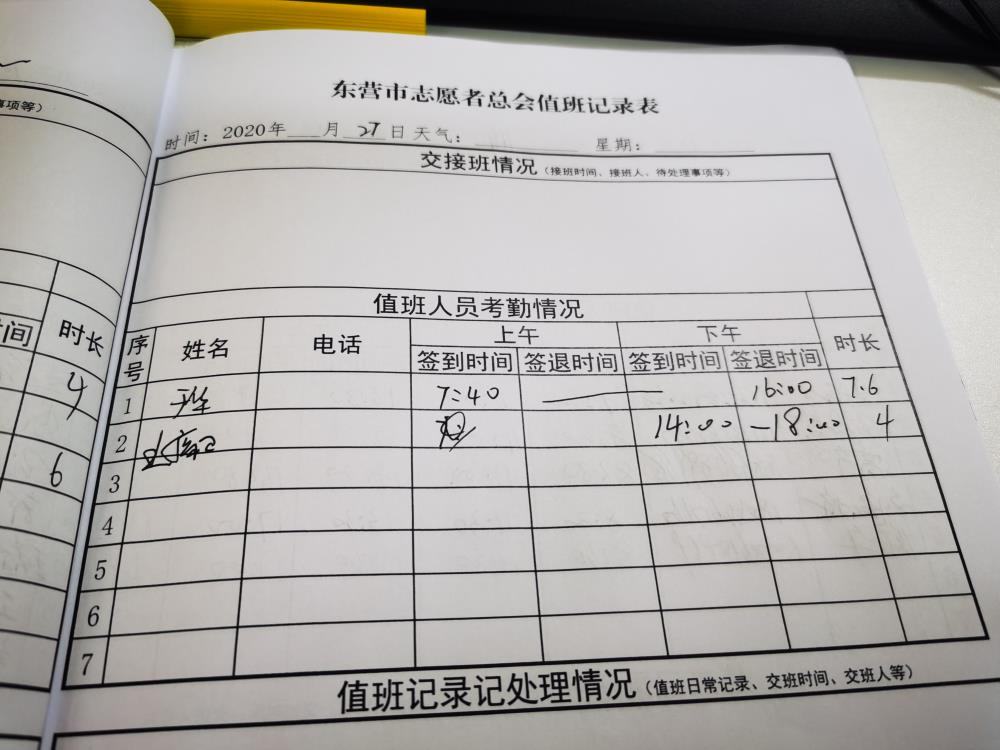 东营市志愿者总会值班记录表
时间：2020年 月 27 日 天气： 星期：
事项等）
交接班情况（接班时间、接班人、待处理事项等）
值班人员考勤情况
序号 姓名 电话 上午 下午 时长
签到时间 签退时间 签到时间 签退时间
间 时长
1 7:40 — — 16:00 7.6
4
2 14:00 -18:00 4
6
3
4
5
6
7
值班记录记处理情况（值班日常记录、交班时间、交班人等）